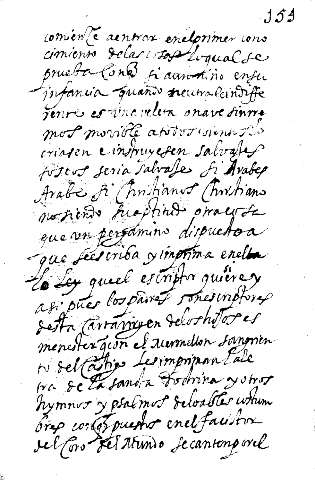 151
comiença a entrar en el primer cono
cimiento de las cosas lo qual se
prueba Con q. si a un niño en su
infancia quando neutral e indiffe
rente es una veleta o nave sin rre
mos movible a todos vientos lo
criasen e instruyesen salvajes
toscos seria salvaje si Arabes
Arabe si Christianos Christiano
no siendo su aptitud otra cosa
que un pergamino dispuesto a
que se escriba y imprima en el
lo Ley que el escriptor quiere y
asi pues los padres son escriptores
desta Carta virgen de los hijos es
menester q con el vermillon sangrien
to del Castigo les impriman la le
tra de la sancta doctrina y otros
hymnos y psalmos de loables costum
bres compuestos en el facistor
del Coro del Mundo se canten por el